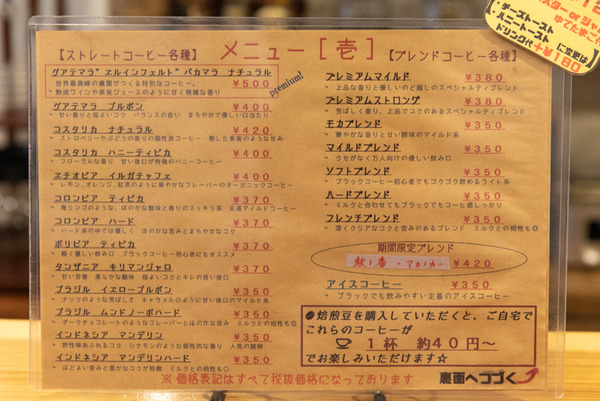 【ストレートコーヒー各種】
メニュー［壱］
【ブレンドコーヒー各種】
グアテマラ"エルインフェルト"パカマラ ナチュラル
¥500
世界最高峰の農園がつくる特別なコーヒー。
~ 熟成ワインや果実ジュースのように甘く複雑な香り
premium!
グアテマラ ブルボン ¥400
~ 甘い香りと程よいコク バランスの良い まろやかで優しい口当たり
コスタリカ ナチュラル ¥420
~ ストロベリーやぶどうの香りの個性派コーヒー 熟した果実のような甘み
コスタリカ ハニーティピカ ¥400
~ フローラルな香り 甘い後口が特徴のハニーコーヒー
エチオピア イルガチャフェ ¥400
~ レモン,オレンジ,紅茶のように華やかなフレーバーのオーガニックコーヒー
コロンビア ティピカ ¥370
~ 青リンゴのような、ほのかな酸味と香りのスッキリ系 王道マイルドコーヒー
コロンビア ハード ¥370
~ ハード系の中では優しく ほのかな苦みとまろやかなコク
ボリビア ティピカ ¥370
~ 軽く優しい飲み口 ブラックコーヒー初心者にもオススメ
タンザニア キリマンジャロ ¥370
~ 甘い芳香 柔らかな酸味 程よいコクとキレの良い後口
ブラジル イエローブルボン ¥350
~ ナッツのような芳ばしさ キャラメルのように甘い後口のマイルド系
ブラジル ムンドノーボハード ¥350
~ ダークチョコレートのようなフレーバーとほのかな苦み ミルクとの相性も◎
インドネシア マンデリン ¥350
~ 野性味あふれるコク シナモンのような個性的な香り 人気の銘柄
インドネシア マンデリンハード ¥350
~ ほどよい苦みと豊かなコクが特徴 ミルクとの相性も◎
プレミアムマイルド ¥380
~ 上品な香りと優しいのど越しのスペシャルティブレンド
プレミアムストロング ¥380
~ 芳ばしく香り。上品でコクのあるスペシャルティブレンド
モカブレンド ¥350
~ 華やかな香りと甘い酸味のマイルド系
マイルドブレンド ¥350
~ クセがなく万人向けの優しい飲み口
ソフトブレンド ¥350
~ ブラックコーヒー初心者でもゴクゴク飲めるライト系
ハードブレンド ¥350
~ ミルクと合わせてもブラックでもコーヒー感しっかり
フレンチブレンド ¥350
~ 深くクリアなコクと苦みのあるブレンド ミルクとの相性も◎
期間限定ブレンド
¥420
アイスコーヒー ¥350
~ ブラックでも飲みやすい定番のアイスコーヒー
●焙煎豆を購入していただくと、ご自宅で
これらのコーヒーが
1杯 約40円~
でお楽しみいただけます☆
※価格表記はすべて税抜価格になっております
裏面へつづく
ゆでたまご
・チーズトースト
・ハニートースト に変更は
ドリンク代+¥180